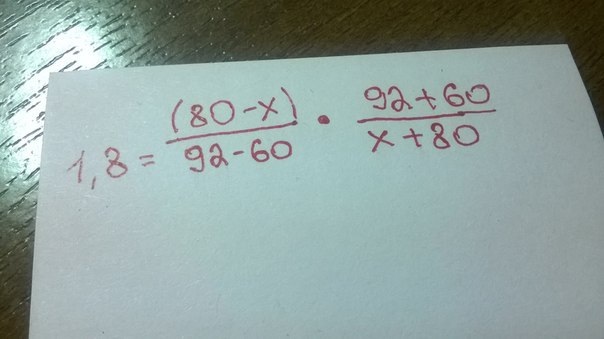 1,8 = (80-x)/(92-60) • (92+60)/(x+80)